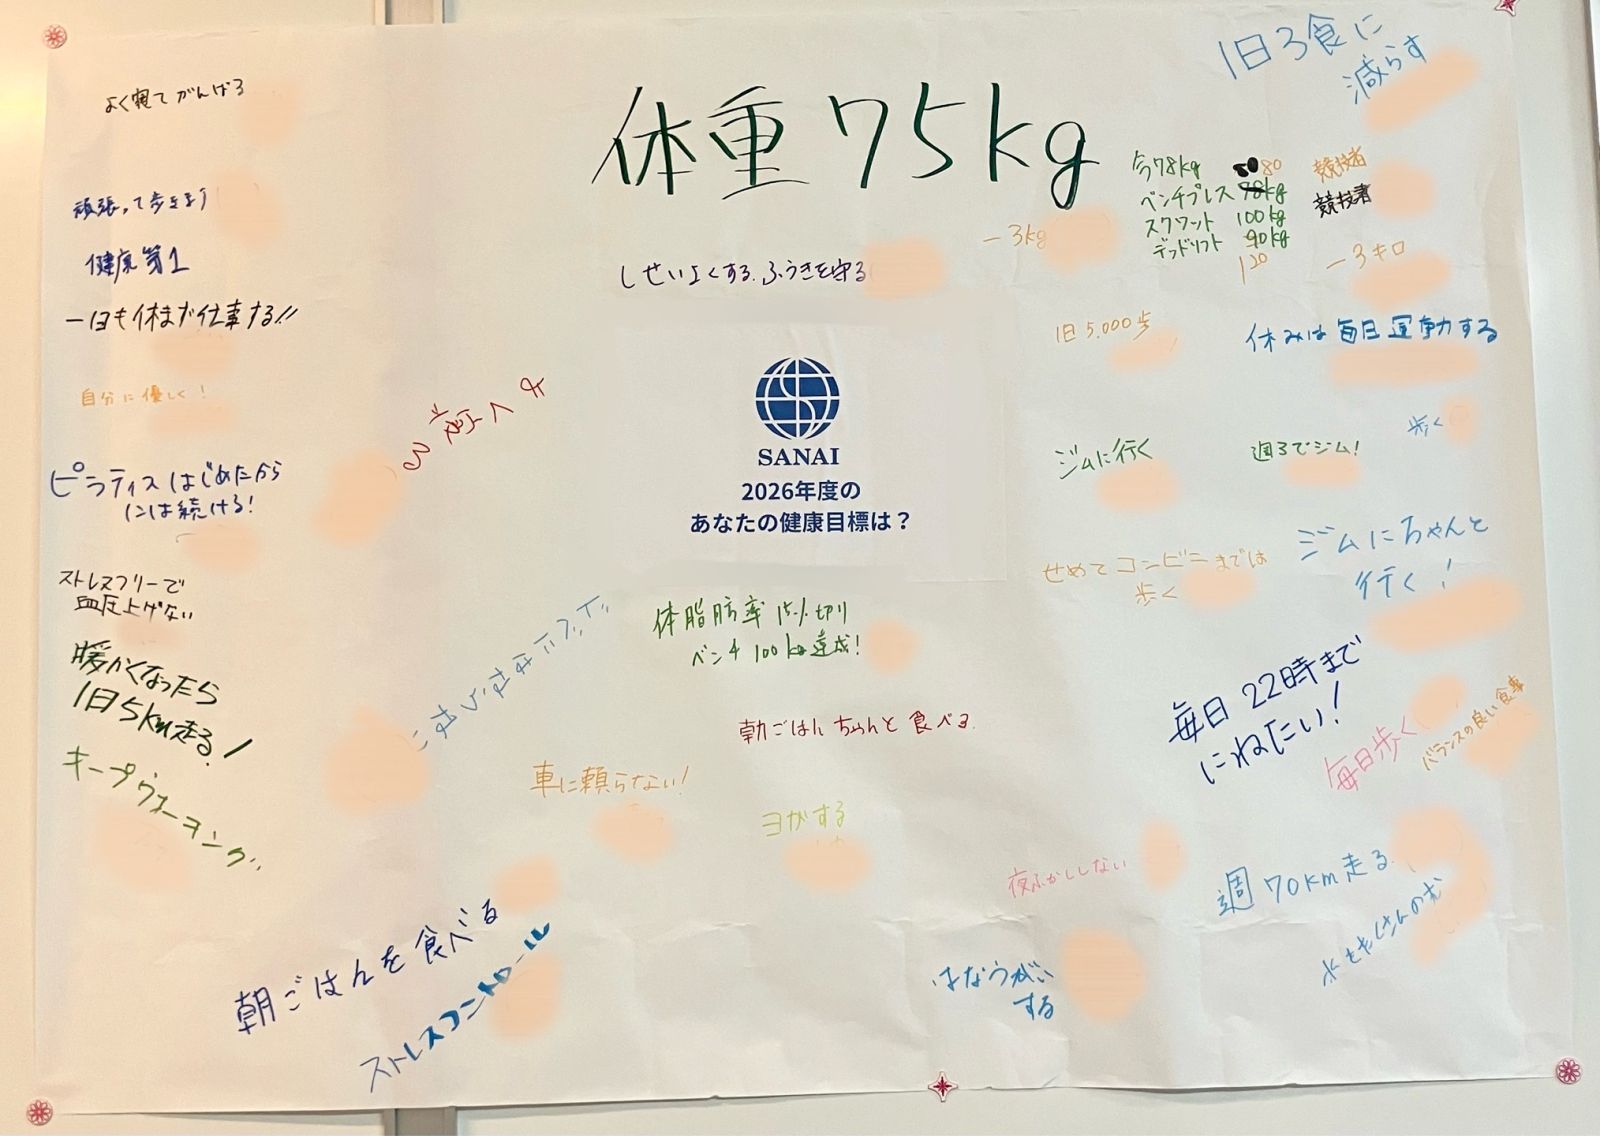 よく寝てがんばる
頑張って歩きます
健康第1
一日も休まず仕事する!!
自分に優しく!
ピラティスはじめたから
には続ける!
ストレスフリーで
血圧上げない
暖かくなったら
1日5km走る!
キープウォーキング
朝ごはんを食べる
ストレスコントロール
体重75kg
しせいよくする.ふうきを守る
SANAI
2026年度の
あなたの健康目標は?
体脂肪率15%切り
ベンチ100kg達成!
朝ごはんちゃんと食べる.
車に頼らない!
ヨガする
1日3食に
減らす
今78kg
ベンチプレス
80
スクワット 100kg
デッドリフト 90kg
120
競技者
競技者
-3kg
-3キロ
1日5,000歩
休みは毎日運動する
歩く
ジムに行く
週3でジム!
せめてコンビニまでは
歩く
ジムにちゃんと
行く!
毎日22時まで
にねたい!
毎日歩く
バランスの良い食事
夜ふかししない
週70km走る
水をたくさんのむ
はなうがい
する